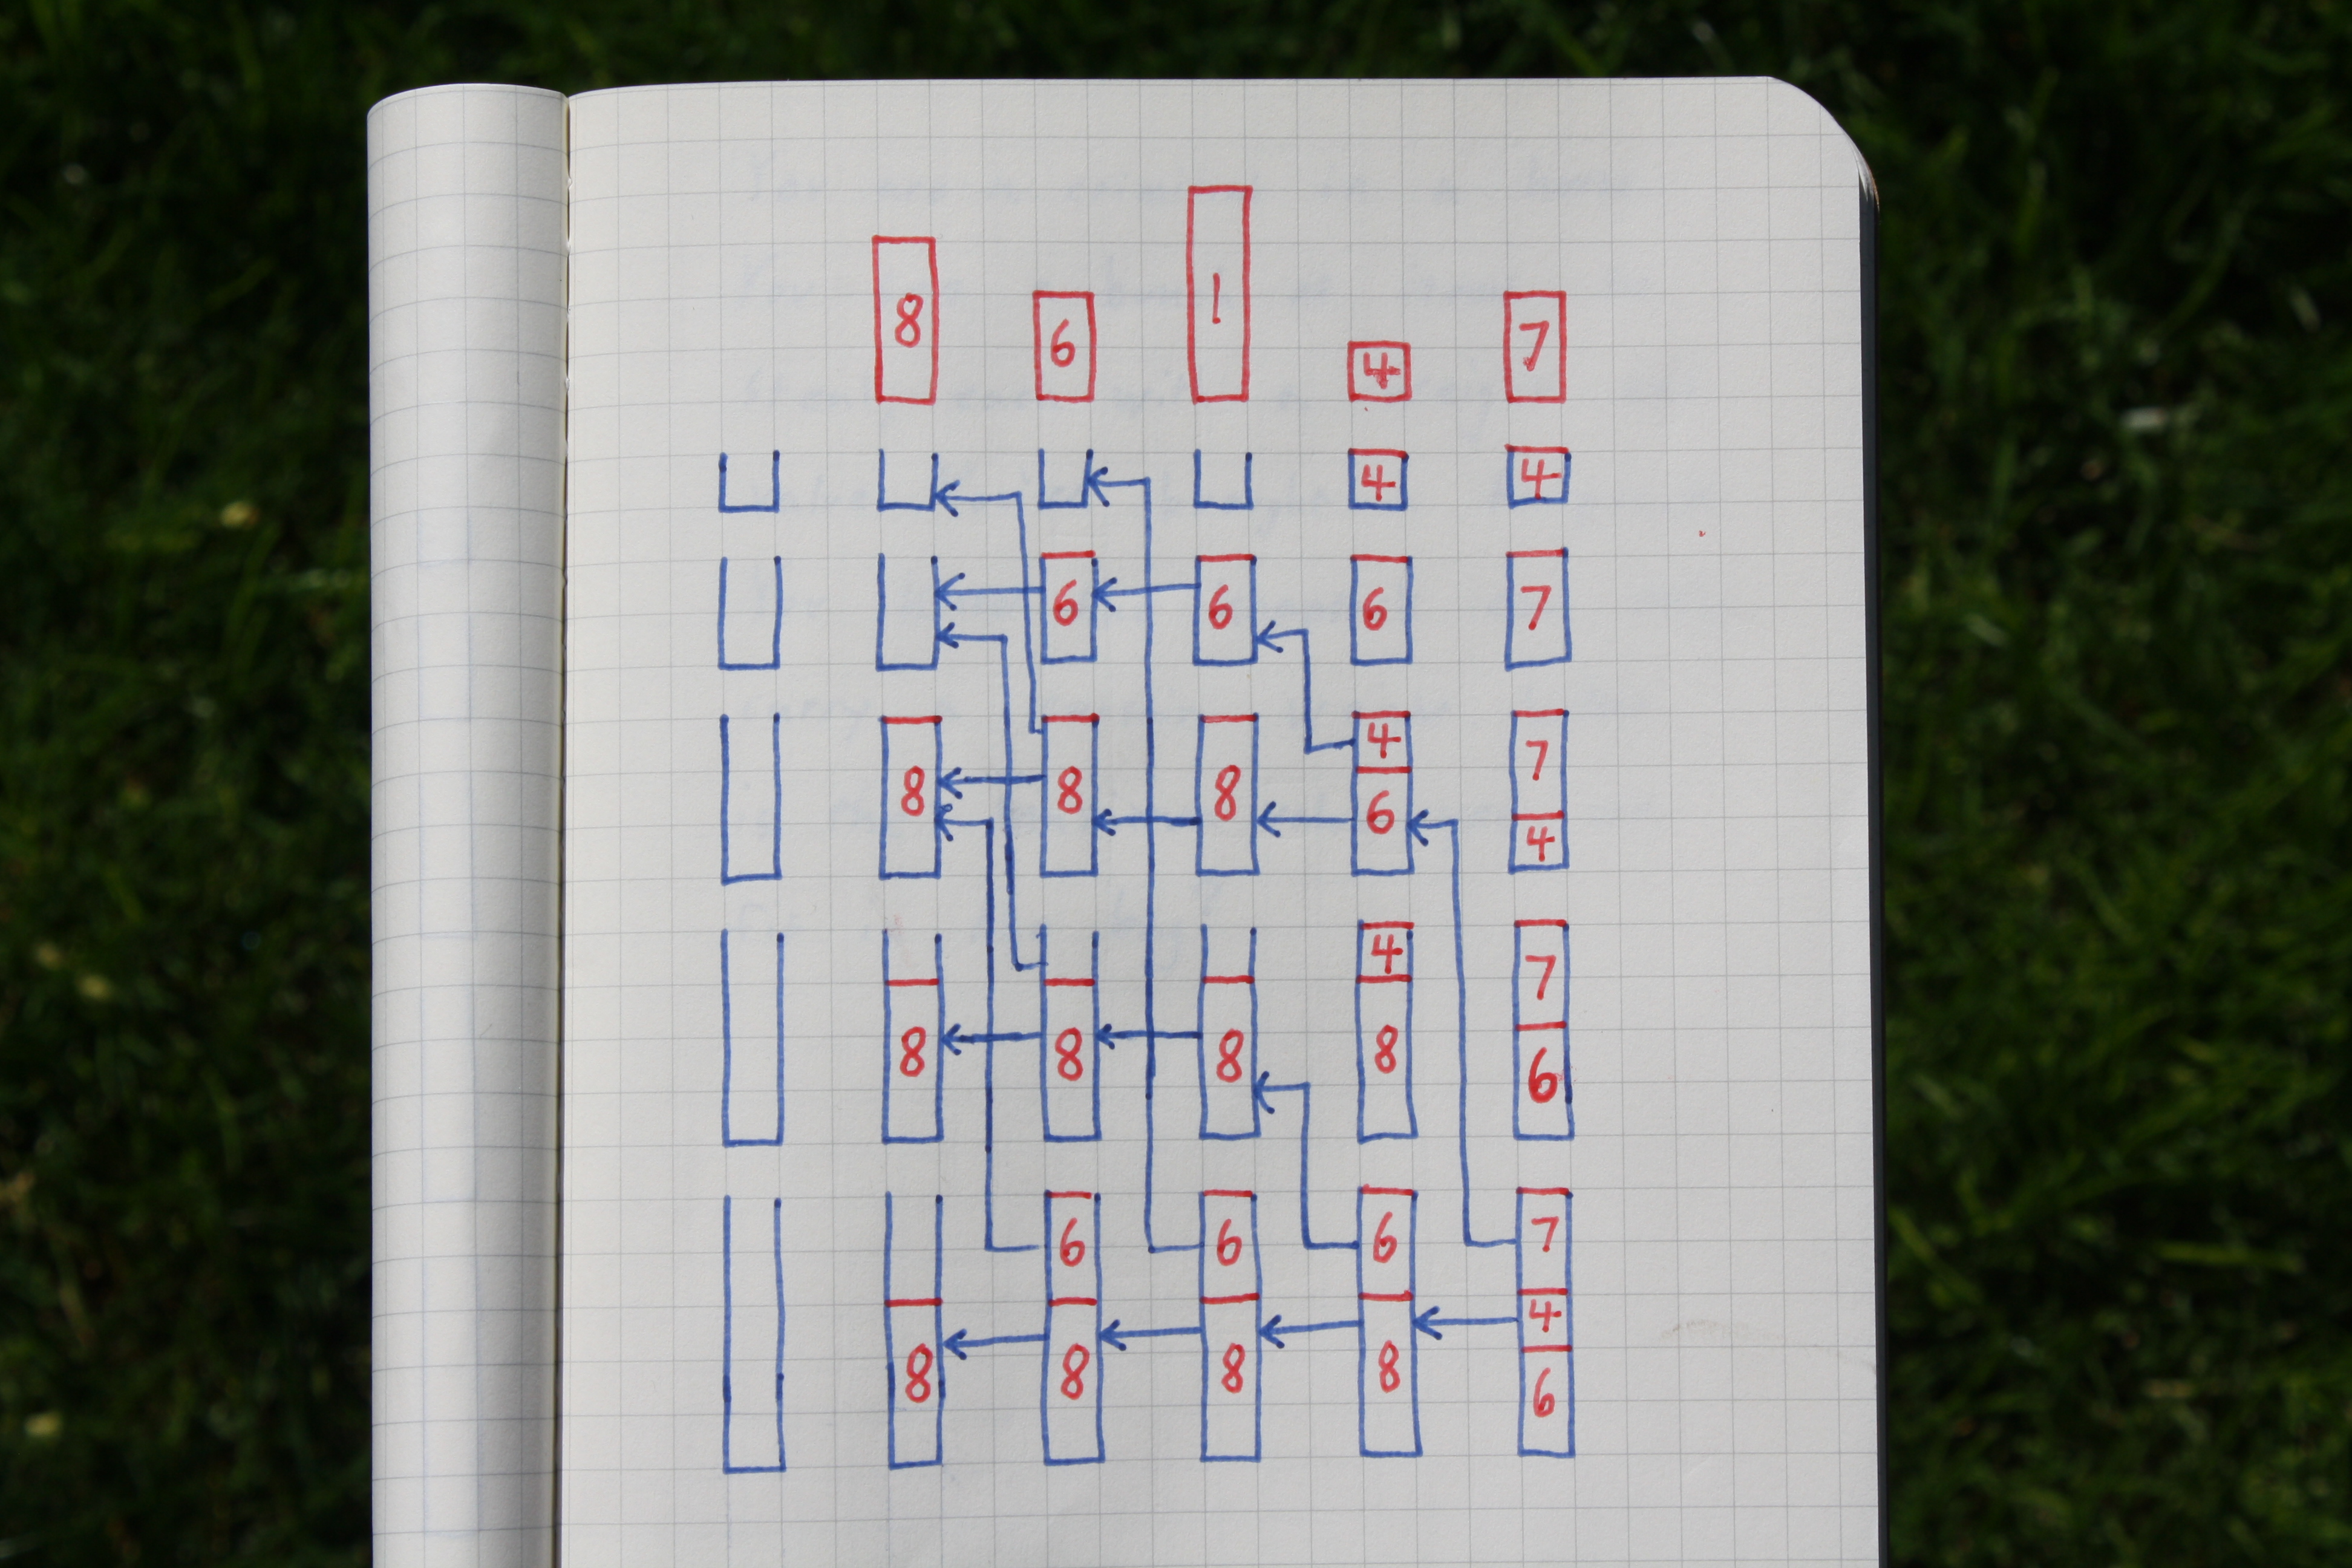 8 6 1 4 7
4 4
6 6 6 7
8 8 8 4 6 7 4
8 8 8 4 8 7 6
8 6 8 6 8 6 8 7 4 6